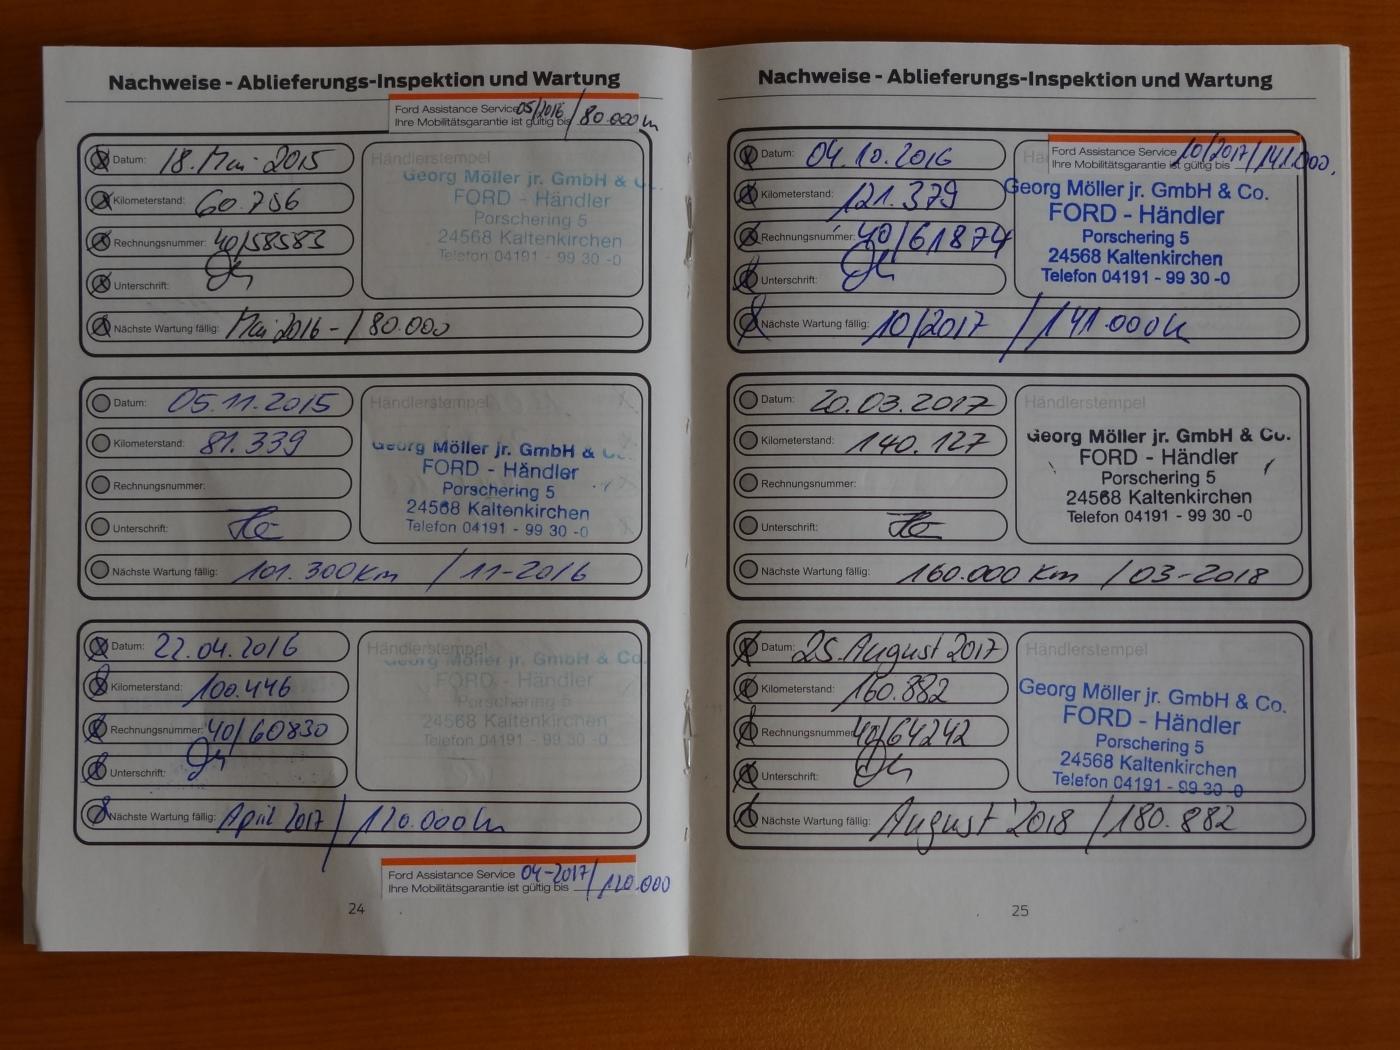 Nachweise - Ablieferungs-Inspektion und Wartung
Ford Assistance Service 05/2016 / 80.000 km
Ihre Mobilitätsgarantie ist gültig bis
Datum: 18. Mai 2015
Kilometerstand: 60.756
Rechnungsnummer: 40/58583
Unterschrift:
Nächste Wartung fällig: Mai 2016 - / 80.000
Händlerstempel
Georg Möller jr. GmbH & Co.
FORD - Händler
Porschering 5
24568 Kaltenkirchen
Telefon 04191 - 99 30 -0
Datum: 05.11.2015
Kilometerstand: 81.339
Rechnungsnummer:
Unterschrift:
Nächste Wartung fällig: 101.300 Km / 11-2016
Händlerstempel
Georg Möller jr. GmbH &
FORD - Händler
Porschering 5
24568 Kaltenkirchen
Telefon 04191 - 99 30 -0
Datum: 22.04.2016
Kilometerstand: 100.446
Rechnungsnummer: 40/60830
Unterschrift:
Nächste Wartung fällig: April 2017 / 120.000 km
Händlerstempel
Georg Möller jr. GmbH & Co.
FORD - Händler
Porschering 5
24568 Kaltenkirchen
Telefon 04191 - 99 30 -0
Ford Assistance Service 04-2017 / 120.000
Ihre Mobilitätsgarantie ist gültig bis
24
Nachweise - Ablieferungs-Inspektion und Wartung
Ford Assistance Service 10/2017 / 141.000,
Ihre Mobilitätsgarantie ist gültig bis
Datum: 04.10.2016
Kilometerstand: 121.379
Rechnungsnummer: 40/61874
Unterschrift:
Nächste Wartung fällig: 10/2017 / 141.000 k
Georg Möller jr. GmbH & Co.
FORD - Händler
Porschering 5
24568 Kaltenkirchen
Telefon 04191 - 99 30 -0
Datum: 20.03.2017
Kilometerstand: 140.127
Rechnungsnummer:
Unterschrift:
Nächste Wartung fällig: 160.000 Km / 03-2018
Händlerstempel
Georg Möller jr. GmbH & Co.
FORD - Händler
Porschering 5
24568 Kaltenkirchen
Telefon 04191 - 99 30 -0
Datum: 25. August 2017
Kilometerstand: 160.882
Rechnungsnummer: 40/64242
Unterschrift:
Nächste Wartung fällig: August 2018 / 180.882
Händlerstempel
Georg Möller jr. GmbH & Co.
FORD - Händler
Porschering 5
24568 Kaltenkirchen
Telefon 04191 - 99 30 -0
25